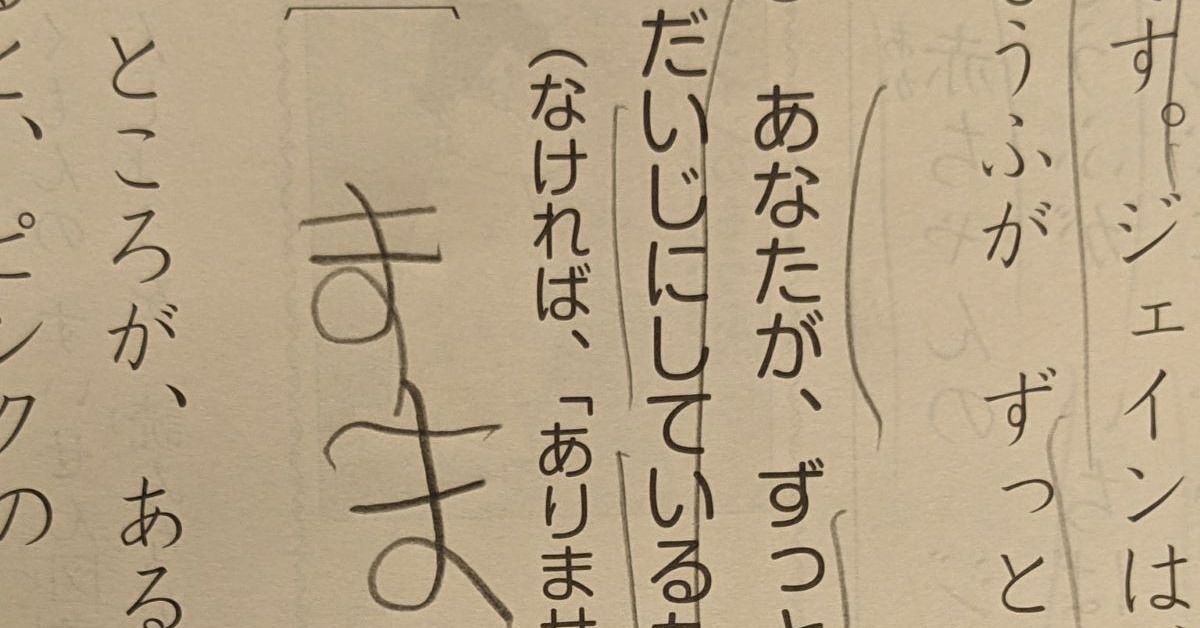 す。ジェインは、
うふが　ずっと
あなたが、ずっと
だいじにしている
（なければ、「ありませ
まま
ところが、ある
と、ピンクの